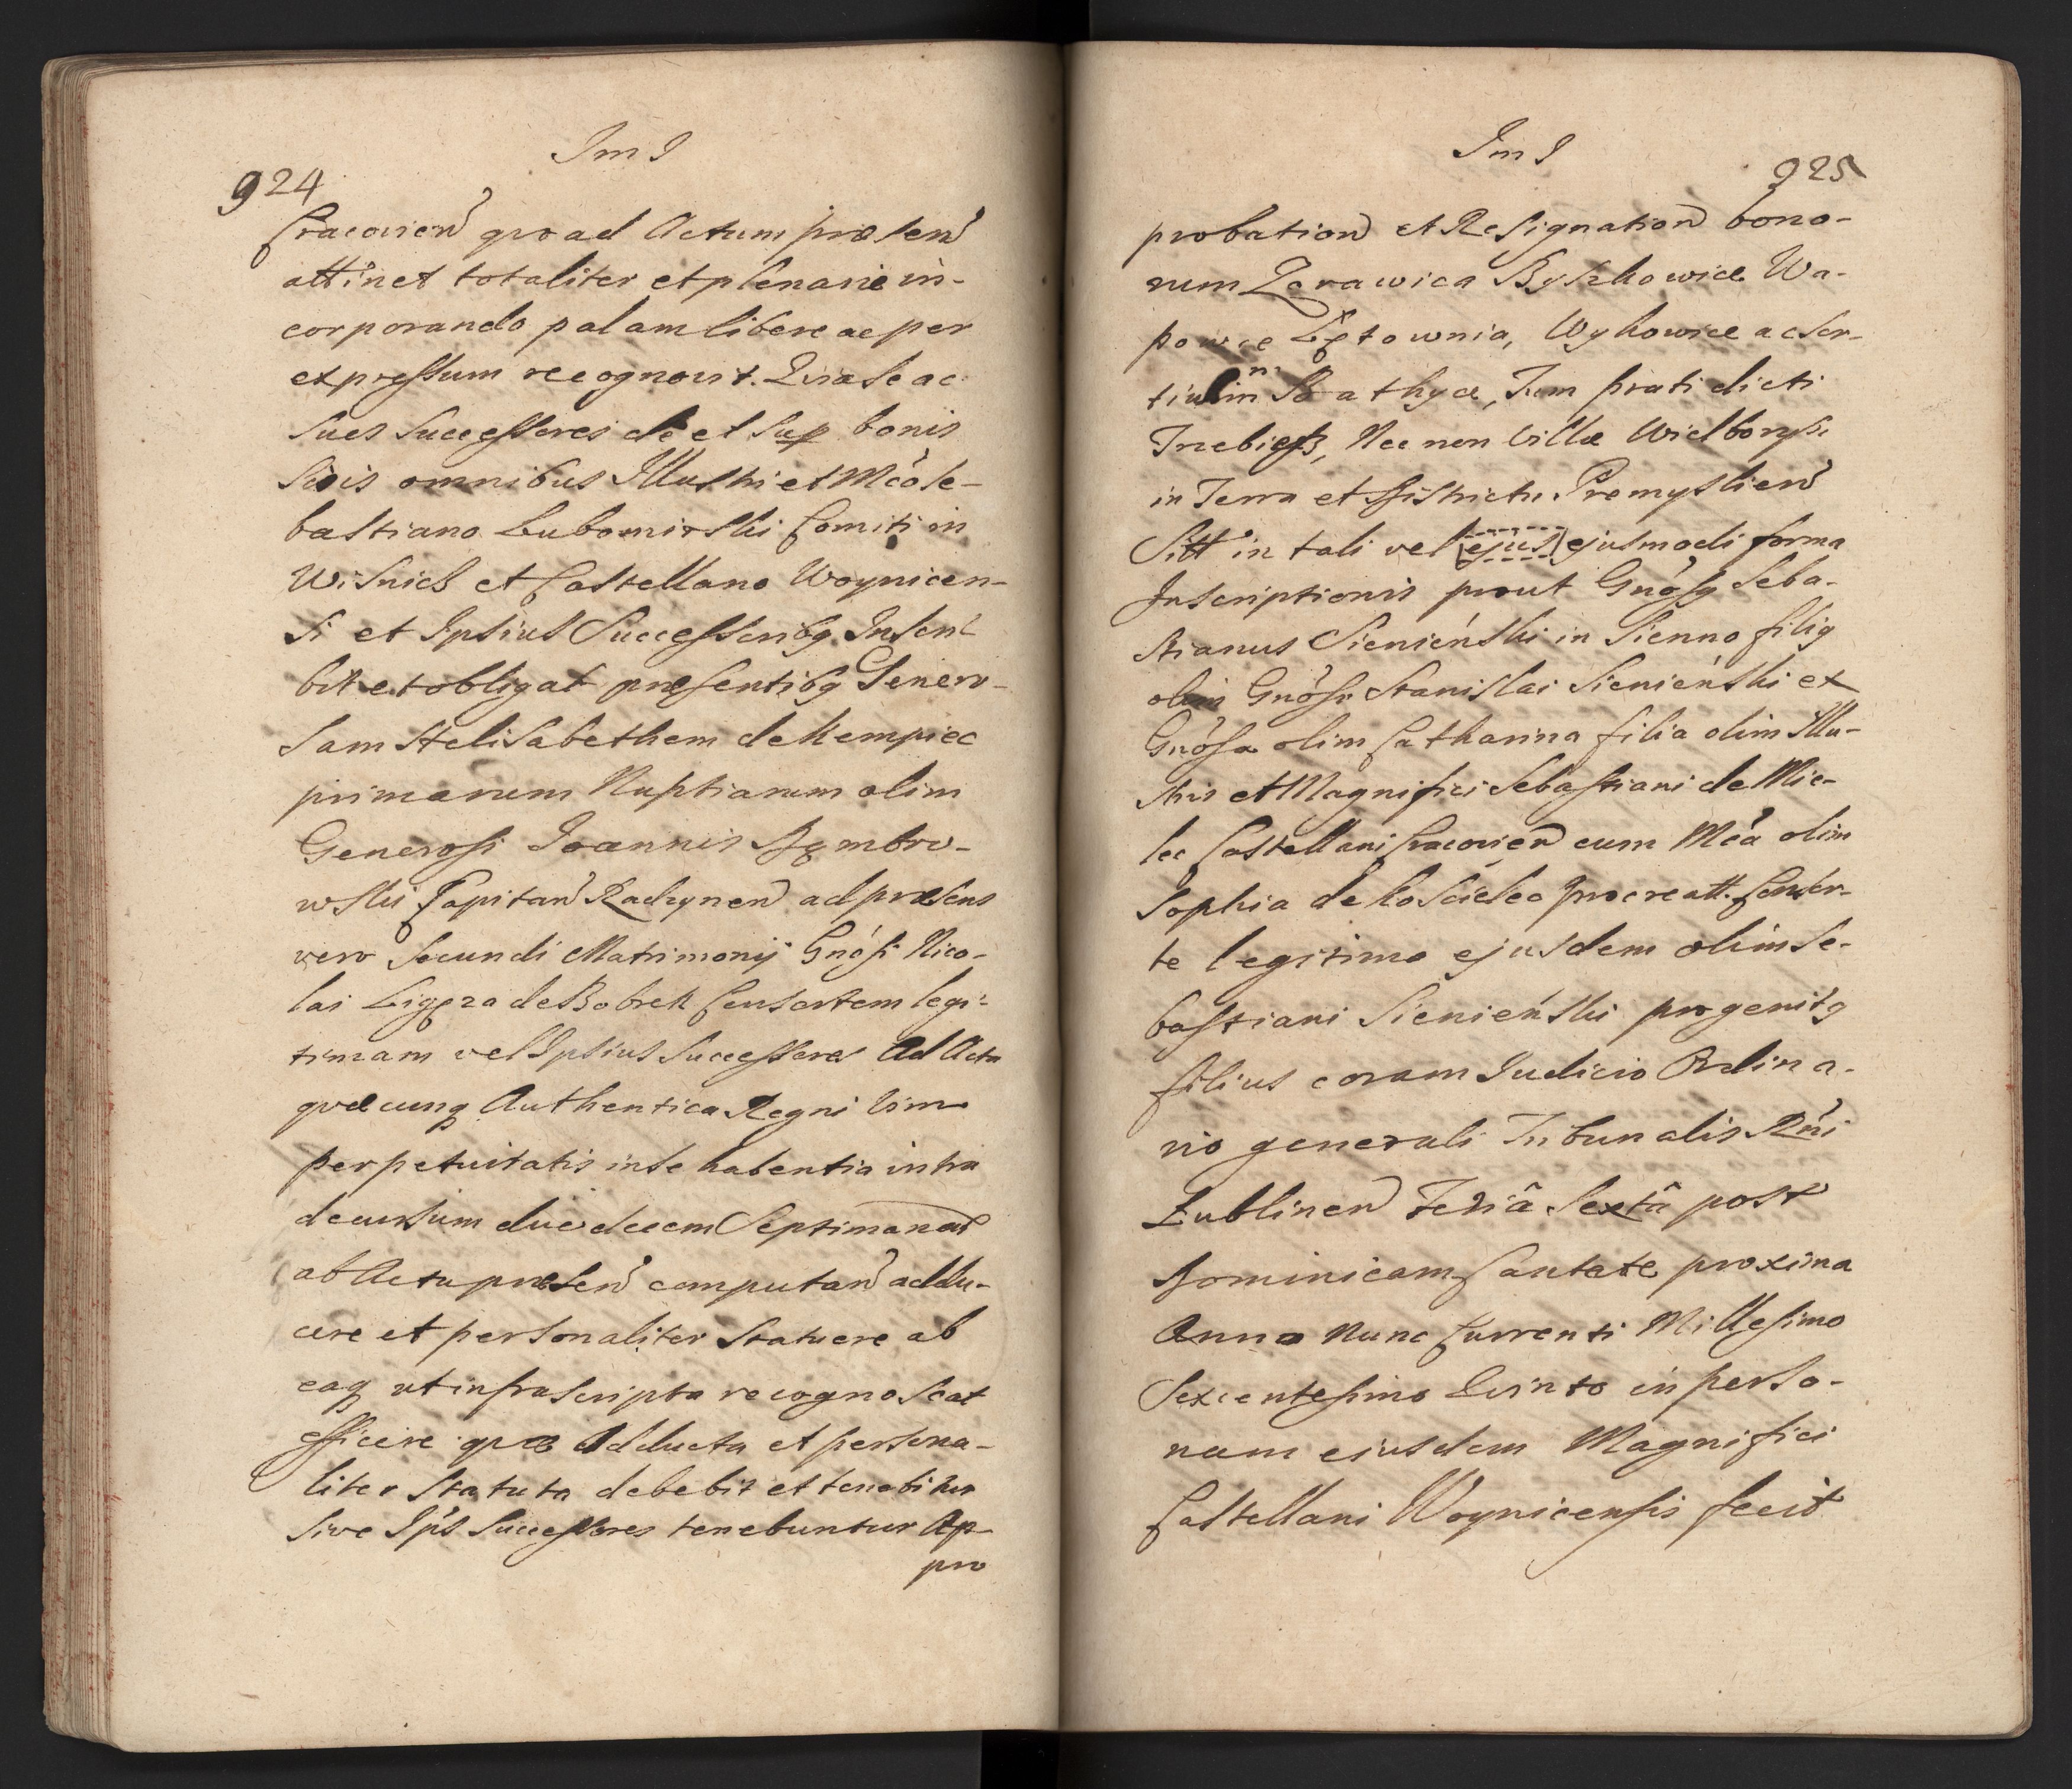 Im I
924
Cracovien quoad Actum præsen
attinet totaliter et plenarie in-
corporando palam libere ac per
expressum recognovit. Quia se ac
sues Successores de et sup bonis
suis omnibus Illustri et Mco Se-
bastiano Lubomirski Comiti in
Wisnicz et Castellano Woynicen-
si et Ipsius Successoribg Inscri
bit et obligat præsentibg Genero-
sam Helisabethem de Kempiec
primarum Nuptiarum olim
Generosi Joannis Dembro-
wski Capitan Radzynen ad præsens
vero Secundi Matrimonij Gnosi Nico-
lai Ligęza de Bobrek Consortem legi-
timam vel Ipsius Successores Ad Acta
quæcunq Authentica Regni vim
perpetuitatis in se habentia intra
decursum duodecem Septimanar
ab Actu præsen computan addu-
cere et personaliter Statuere ab
eaq ut infrascripta recognoscat
efficere quæ Adducta et persona-
liter Statuta debebit et tenebitur
sive Ips Successores tenebuntur Ap-
pro
Im I
925
probation et Resignation bono-
rum Żorawica Byszkowice Wa-
powce Lętownia, Wykowice ac Sor-
tium in Bathyce, Tum prati dicti
Trebiesz, Nec non Villæ Wielborysz
in Terra et Districtu Premyslien
Sitt in tali vel ejus ejusmodi forma
Inscriptionis prout Gnosg Seba-
stianus Sienieński in Sienno filig
olim Gnosi Stanislai Sienieński ex
Gnosa olim Catharina filia olim Illu-
stris et Magnifici Sebastiani de Mie-
lec Castellani Cracovien cum Mca olim
Sophia de Koscielec procreatt. Consor-
te legitima ejusdem olim Se-
bastiani Sienieński progenitg
filius coram Judicio Ordina-
rio generali Tribunalis Rni
Lublinen Feriâ Sextâ post
Dominicam Cantate proxima
Anno Nunc Currenti Millesimo
Sexcentesimo Quinto in perso-
nam ejusdem Magnifici
Castellani Woynicensis fecit